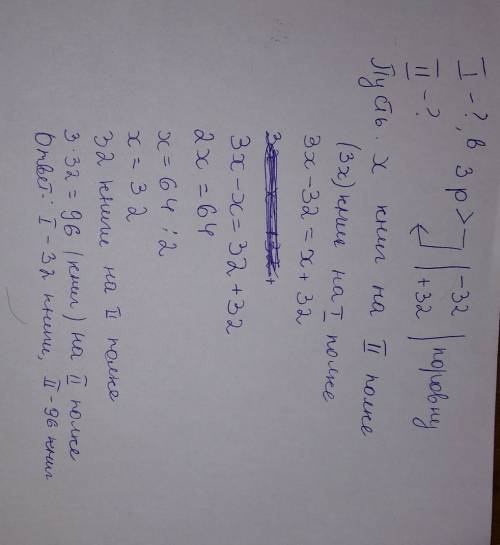 I - ?, в 3 р > ⌉ | -32 | поровну
II - ? ↲ | +32
Пусть x книг на II полке
(3x) книг на I полке
3x - 32 = x + 32
3x - x = 32 + 32
2x = 64
x = 64 : 2
x = 32
32 книги на II полке
3 · 32 = 96 (книг) на II полке
Ответ: I - 32 книги, II - 96 книг